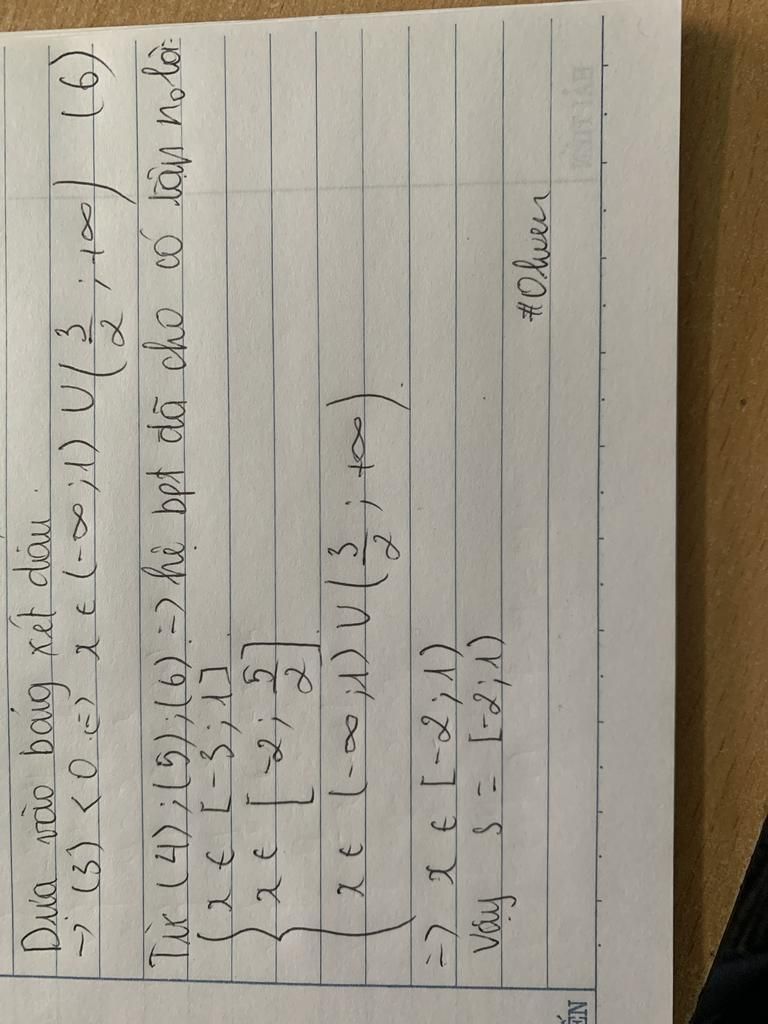 Dựa vào bảng xét dấu.
→ (3) < 0 ⇒ x ∈ (-∞; 1) ∪ (3/2; +∞) (6)
Từ (4); (5); (6) => hệ bpt đã cho có tập no là:
{ x ∈ [-3; 1]
x ∈ [-2; 5/2]
x ∈ (-∞; 1) ∪ (3/2; +∞).
=> x ∈ [-2; 1)
Vậy S = [-2; 1)
#Olwen